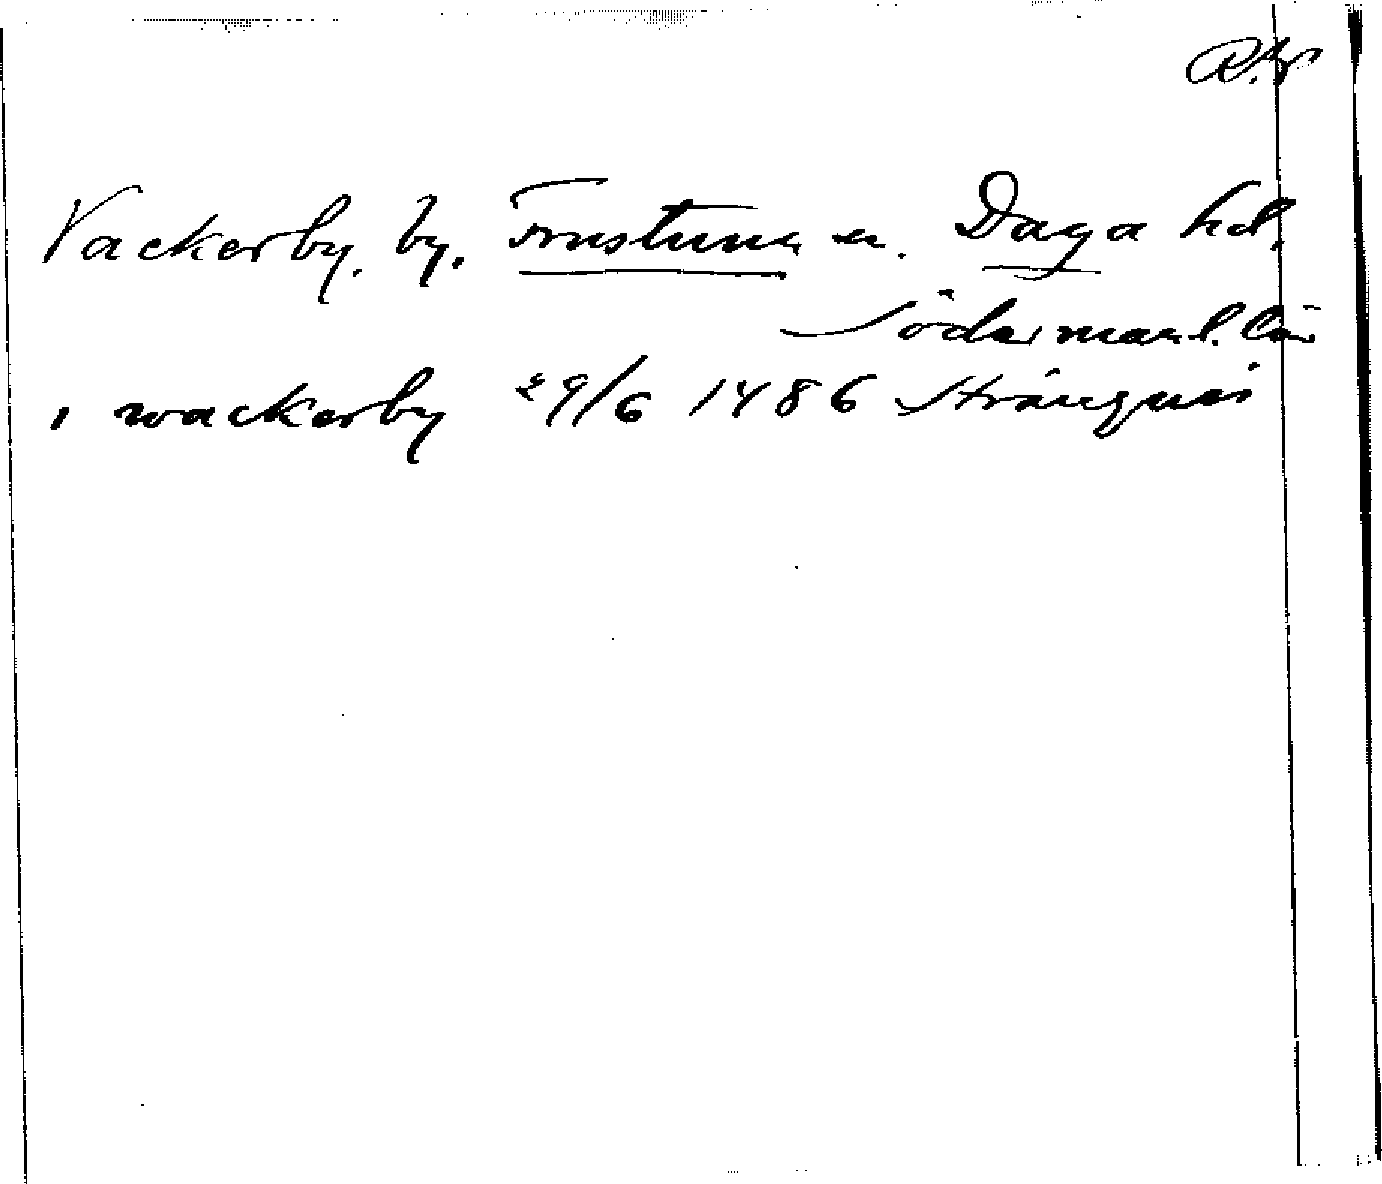 R.A.
Vackerby, by, Frustuna sn. Daga hd.
Södermanl. län
i wackerby 29/6 1486 Strängnäs